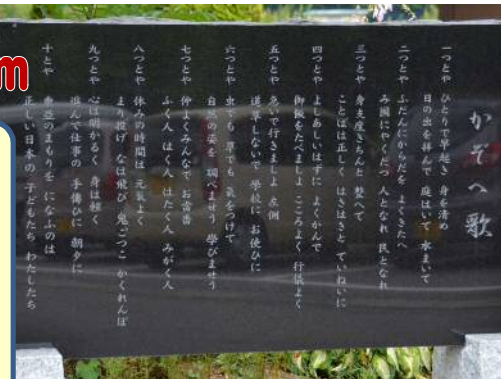 かぞへ歌
一つとや ひとりで早起き 身を清め
日の出を拝んで 庭はいて 水まいて
二つとや ふだんにからだを よくきたへ
み國にやくだつ 人となれ 民となれ
三つとや 身支度きちんと 整へて
ことばは正しく はきはきと ていねいに
四つとや よしあしいはずに よくかんで
御飯をたべましよ こころよく 行儀よく
五つとや 急いで行きましよ 左側
道草しないで 學校に お使ひに
六つとや 虫でも 草でも 氣をつけて
自然の姿を 調べませう 學びませう
七つとや 仲よくみんなで お當番
ふく人 はく人 はたく人 みがく人
八つとや 休みの時間は 元氣よく
まり投げ なは飛び 鬼ごつこ かくれんぼ
九つとや 心は明かるく 身は輕く
進んで仕事の 手傳ひに 朝夕に
十とや 東亞のまもりを になふのは
正しい日本の 子どもたち わたしたち
m